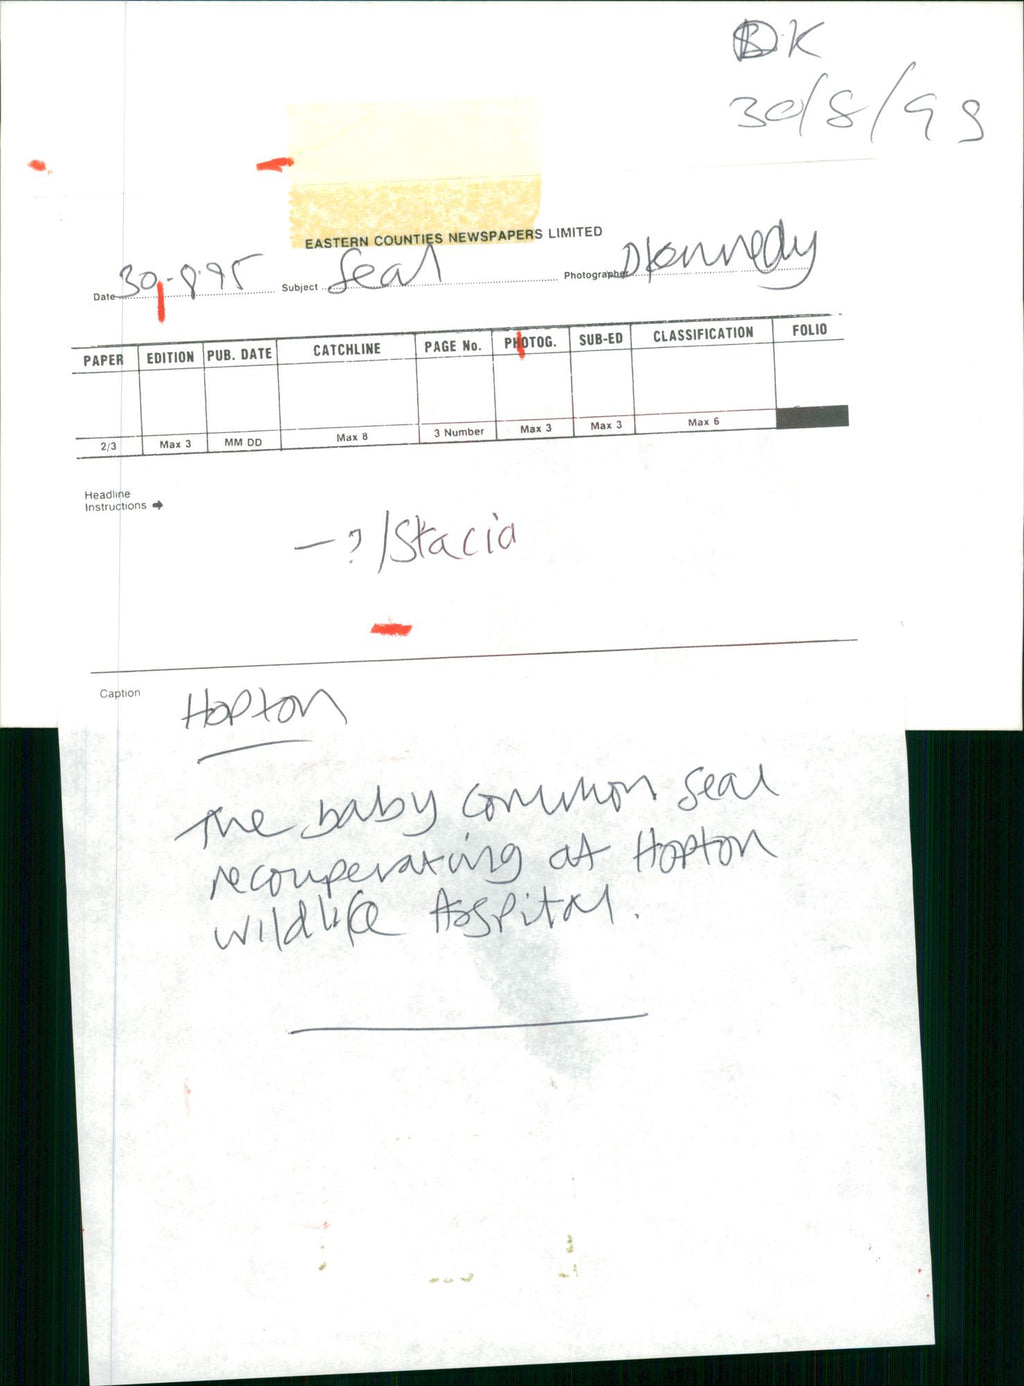 DK
30/8/95
EASTERN COUNTIES NEWSPAPERS LIMITED
Date 30-8-95 Subject Seal Photographer D Kennedy
PAPER EDITION PUB. DATE CATCHLINE PAGE No. PHOTOG. SUB-ED CLASSIFICATION FOLIO
2/3 Max 3 MM DD Max 8 3 Number Max 3 Max 3 Max 6
Headline
Instructions →
— ? / Stacia
Caption
Hopton
The baby common seal
recouperating at Hopton
wildlife Hospital.